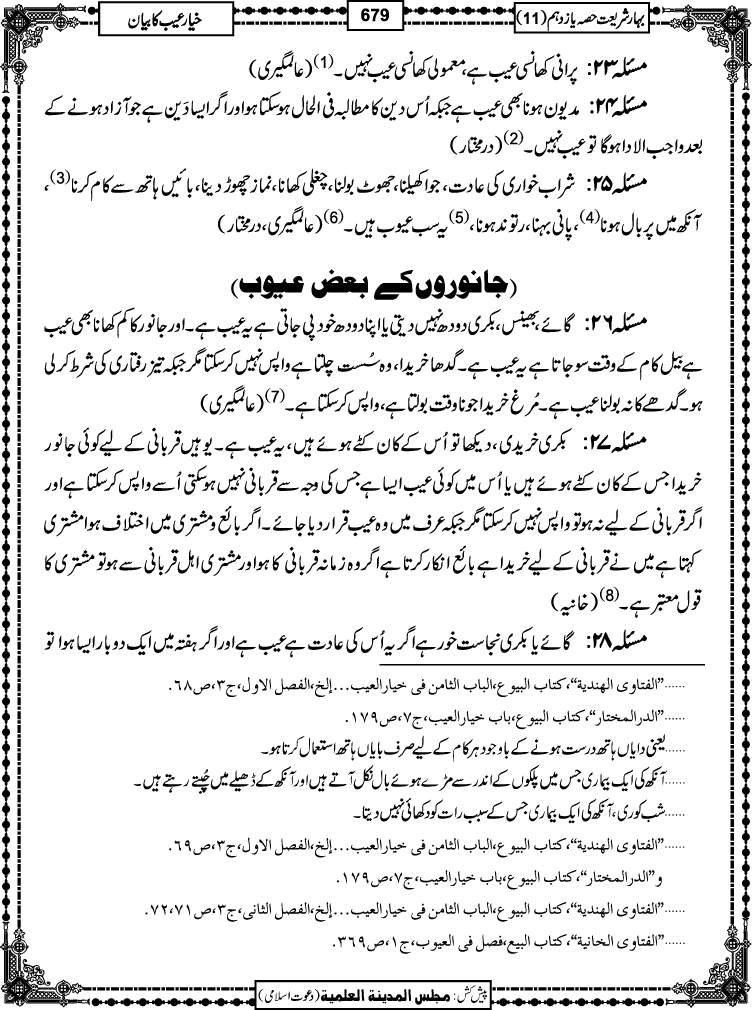 بہارِ شریعت حصہ یازدہم (11)
679
خیار عیب کا بیان
مسئلہ ۲۳: پرانی کھانسی عیب ہے، معمولی کھانسی عیب نہیں۔(1) (عالمگیری)
مسئلہ ۲۴: مدیون ہونا بھی عیب ہے جبکہ اُس دین کا مطالبہ فی الحال ہو سکتا ہو اور اگر ایسا دَین ہے جو آزاد ہونے کے
بعد واجب الادا ہوگا تو عیب نہیں۔(2) (درمختار)
مسئلہ ۲۵: شراب خواری کی عادت، جوا کھیلنا، جھوٹ بولنا، چغلی کھانا، نماز چھوڑ دینا، بائیں ہاتھ سے کام کرنا(3)،
آنکھ میں پربال ہونا(4)، پانی بہنا، رتوند ہونا،(5) یہ سب عیوب ہیں۔(6) (عالمگیری، درمختار)
(جانوروں کے بعض عیوب)
مسئلہ ۲۶: گائے، بھینس، بکری دودھ نہیں دیتی یا اپنا دودھ خود پی جاتی ہے یہ عیب ہے۔ اور جانور کا کم کھانا بھی عیب
ہے بیل کام کے وقت سو جاتا ہے یہ عیب ہے۔ گدھا خریدا، وہ سُست چلتا ہے واپس نہیں کرسکتا مگر جبکہ تیز رفتاری کی شرط کرلی
ہو۔ گدھے کا نہ بولنا عیب ہے۔ مُرغ خریدا جو نا وقت بولتا ہے، واپس کرسکتا ہے۔(7) (عالمگیری)
مسئلہ ۲۷: بکری خریدی، دیکھا تو اُس کے کان کٹے ہوئے ہیں، یہ عیب ہے۔ یوہیں قربانی کے لیے کوئی جانور
خریدا جس کے کان کٹے ہوئے ہیں یا اُس میں کوئی عیب ایسا ہے جس کی وجہ سے قربانی نہیں ہوسکتی اُسے واپس کرسکتا ہے اور
اگر قربانی کے لیے نہ ہو تو واپس نہیں کرسکتا مگر جبکہ عرف میں وہ عیب قرار دیا جائے۔ اگر بائع و مشتری میں اختلاف ہوا مشتری
کہتا ہے میں نے قربانی کے لیے خریدا ہے بائع انکار کرتا ہے اگر وہ زمانہ قربانی کا ہو اور مشتری اہل قربانی سے ہو تو مشتری کا
قول معتبر ہے۔(8) (خانیہ)
مسئلہ ۲۸: گائے یا بکری نجاست خور ہے اگر یہ اُس کی عادت ہے عیب ہے اور اگر ہفتہ میں ایک دو بار ایسا ہوا تو
......”الفتاوی الھندیة“، کتاب البیوع، الباب الثامن فی خیار العیب...إلخ، الفصل الاول، ج۳، ص۶۸.
......”الدرالمختار“، کتاب البیوع، باب خیار العیب، ج۷، ص۱۷۹.
......یعنی دایاں ہاتھ درست ہونے کے باوجود ہر کام کے لیے صرف بایاں ہاتھ استعمال کرتا ہو۔
......آنکھ کی ایک بیماری جس میں پلکوں کے اندر سے مڑے ہوئے بال نکل آتے ہیں اور آنکھ کے ڈھیلے میں چُبھتے رہتے ہیں۔
......شب کوری، آنکھ کی ایک بیماری جس کے سبب رات کو دکھائی نہیں دیتا۔
......”الفتاوی الھندیة“، کتاب البیوع، الباب الثامن فی خیار العیب...إلخ، الفصل الاول، ج۳، ص۶۹.
و ”الدرالمختار“، کتاب البیوع، باب خیار العیب، ج۷، ص۱۷۹.
......”الفتاوی الھندیة“، کتاب البیوع، الباب الثامن فی خیار العیب...إلخ، الفصل الثانی، ج۳، ص۷۱،۷۲.
......”الفتاوی الخانیة“، کتاب البیع، فصل فی العیوب، ج۱، ص۳۶۹.
پیش کش: مجلس المدینة العلمیة (دعوت اسلامی)